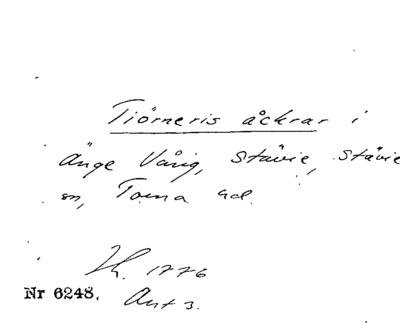 Tiörneris åckrar i
Änge Vång, Stävie, Stävie
sn, Torna hd.
Lh. 1776
Nr 6248. Akt 3.